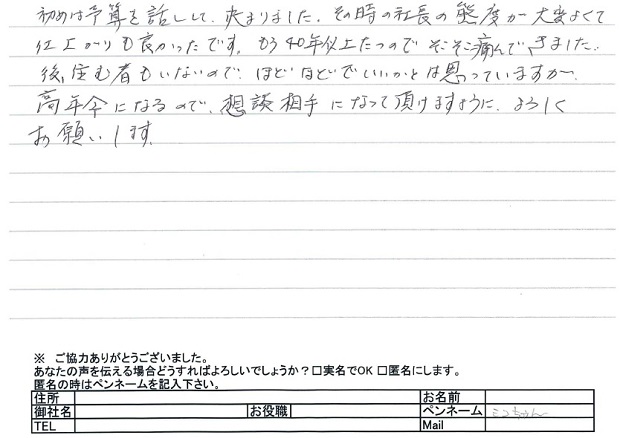 初めは予算を話しして、決まりました。その時の社長の態度が大変よくて
仕上がりも良かったです。もう40年以上たつのでそろそろ痛んできました。
後、住む者もいないので、ほどほどでいいかとは思っていますが、
高年令になるので、想談相手になって頂けますように、よろしく
お願いします。
※ ご協力ありがとうございました。
あなたの声を伝える場合どうすればよろしいでしょうか？□実名でOK □匿名にします。
匿名の時はペンネームを記入下さい。
住所 お名前
御社名 お役職 ペンネーム ミコちゃん
TEL Mail